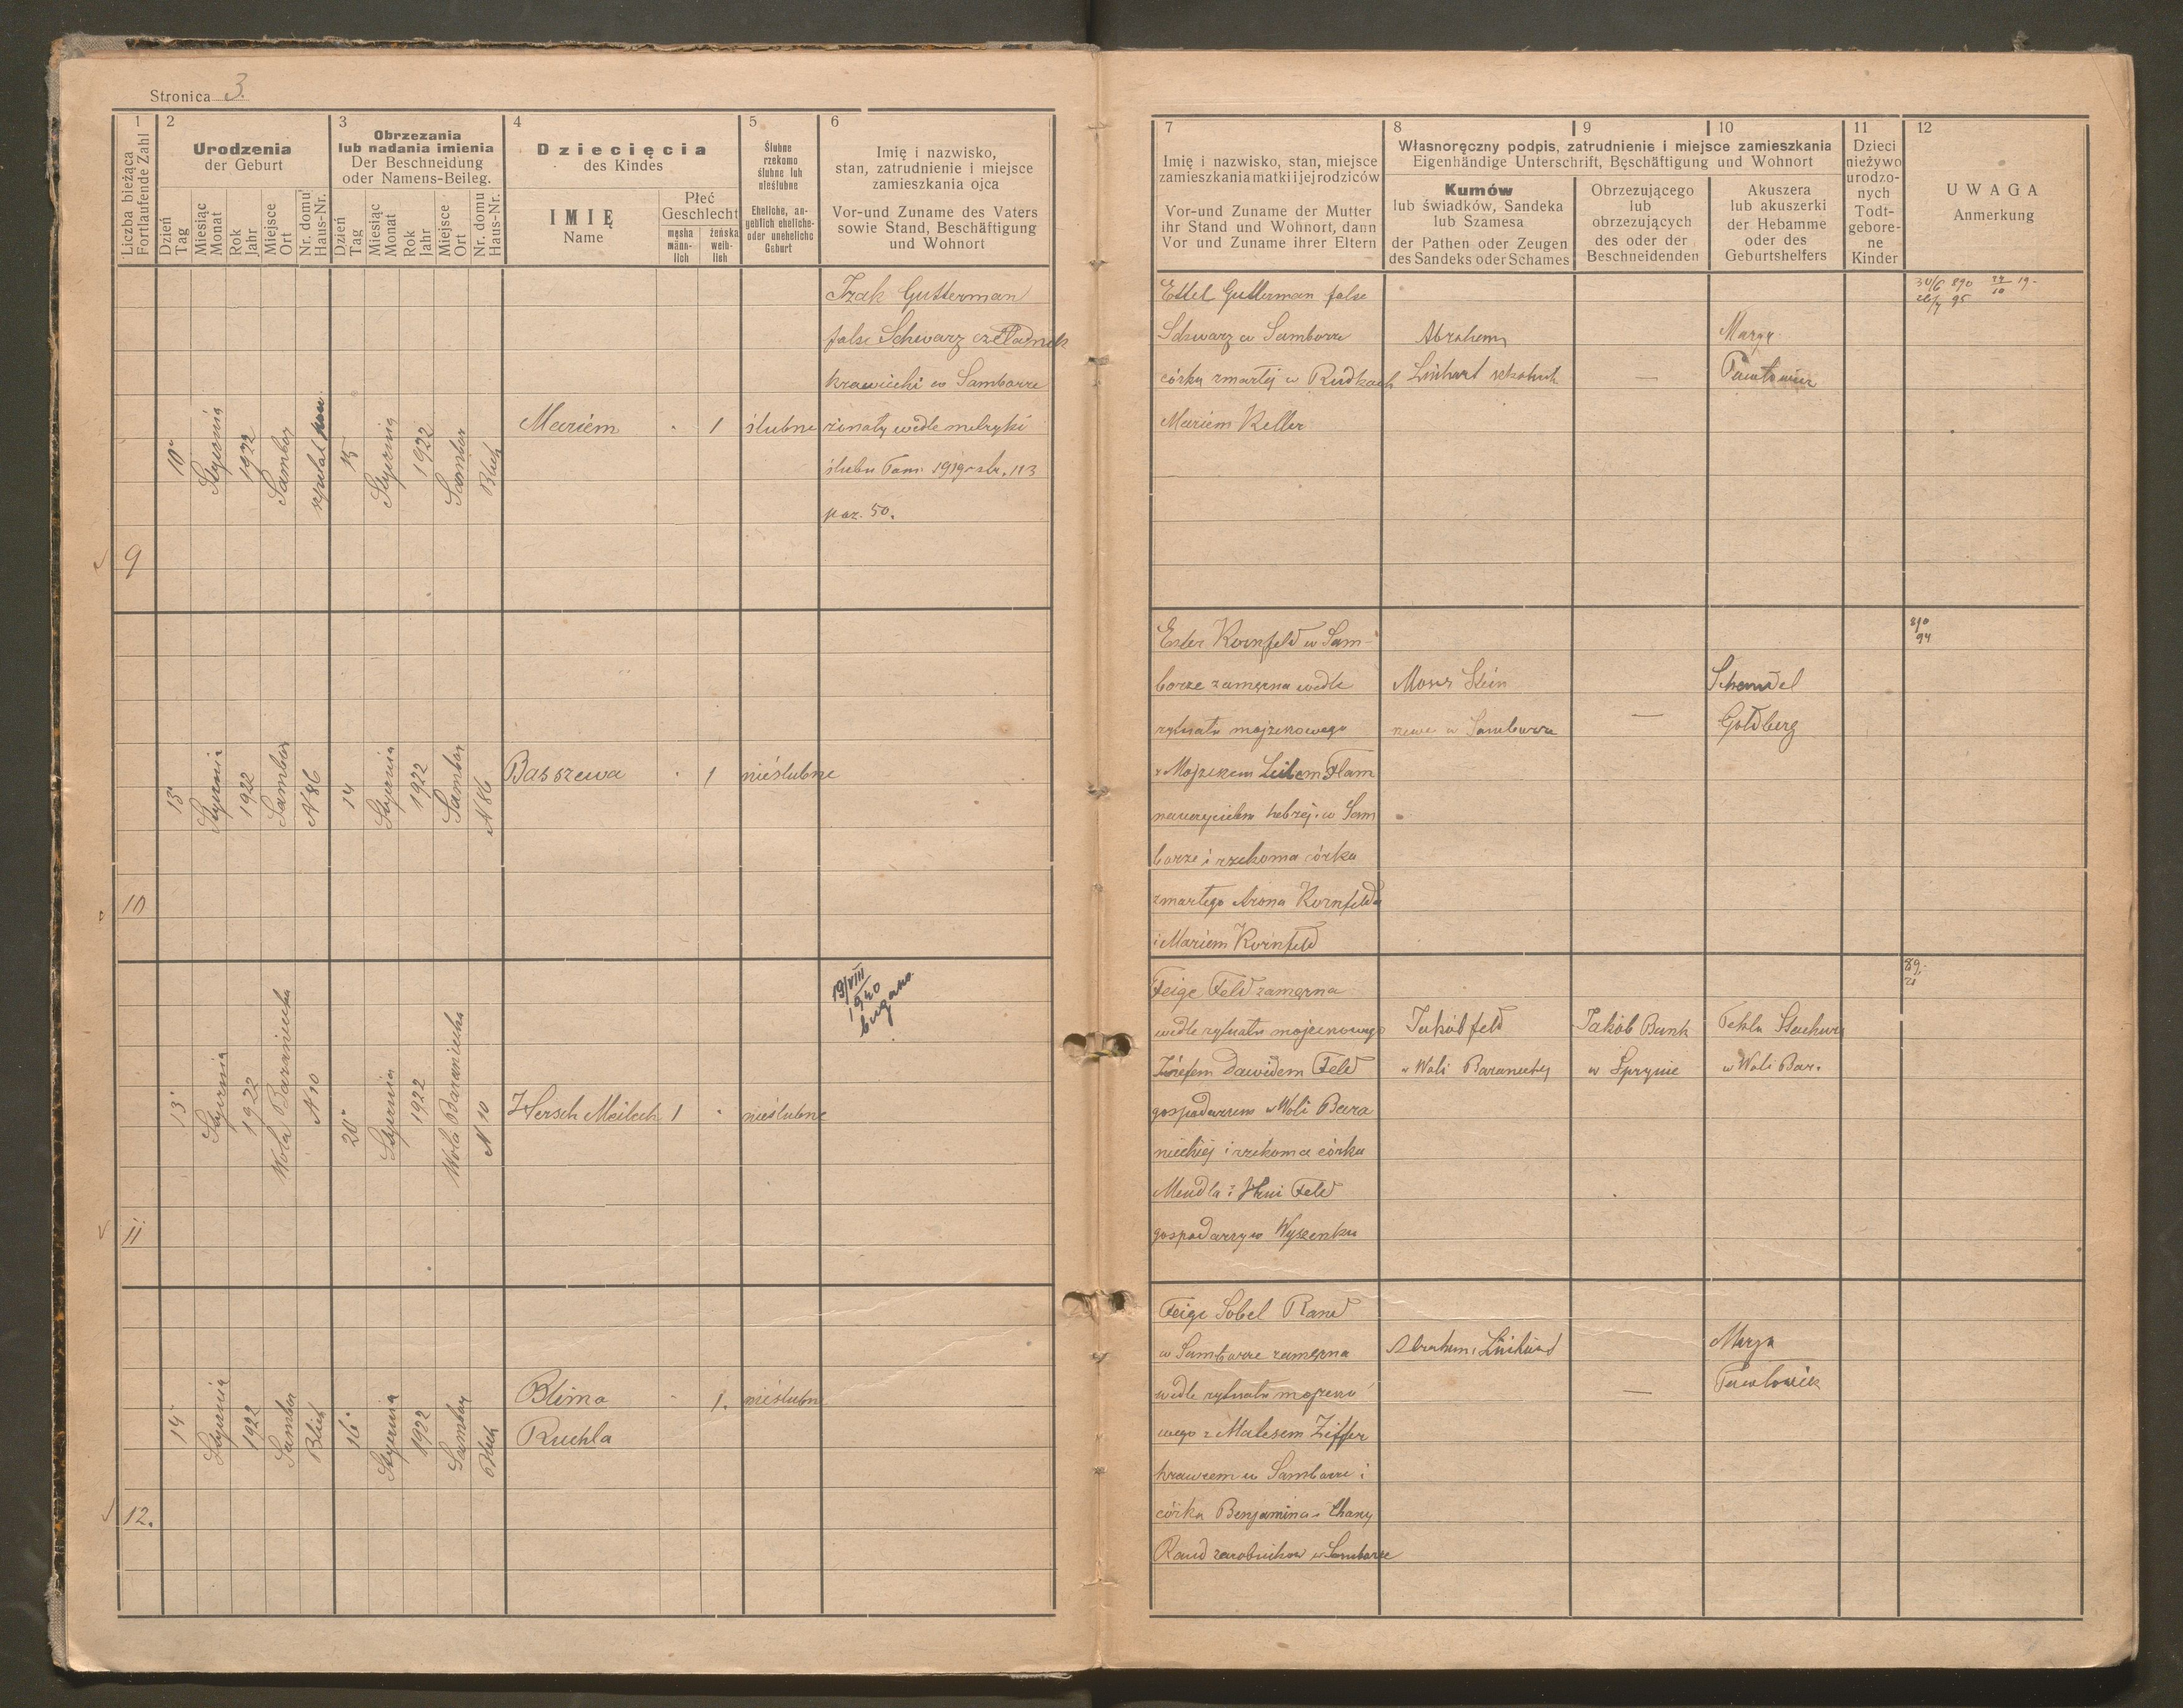 Stronica 3.
1
Liczba bieżąca
Fortlaufende Zahl
2
Urodzenia
der Geburt
Dzień
Tag
Miesiąc
Monat
Rok
Jahr
Miejsce
Ort
Nr. domu
Haus-Nr.
3
Obrzezania
lub nadania imienia
Der Beschneidung
oder Namens-Beileg.
Dzień
Tag
Miesiąc
Monat
Rok
Jahr
Miejsce
Ort
Nr. domu
Haus-Nr.
4
Dziecięcia
des Kindes
IMIĘ
Name
Płeć
Geschlecht
męska
männ-
lich
żeńska
weib-
lich
5
Ślubne
rzekomo
ślubne lub
nieślubne
Eheliche, an-
geblich eheliche-
oder uneheliche
Geburt
6
Imię i nazwisko,
stan, zatrudnienie i miejsce
zamieszkania ojca
Vor-und Zuname des Vaters
sowie Stand, Beschäftigung
und Wohnort
7
Imię i nazwisko, stan, miejsce
zamieszkania matki i jej rodziców
Vor-und Zuname der Mutter
ihr Stand und Wohnort, dann
Vor und Zuname ihrer Eltern
8
9
10
Własnoręczny podpis, zatrudnienie i miejsce zamieszkania
Eigenhändige Unterschrift, Beschäftigung und Wohnort
Kumów
lub świadków, Sandeka
lub Szamesa
der Pathen oder Zeugen
des Sandeks oder Schames
Obrzezującego
lub
obrzezujących
des oder der
Beschneidenden
Akuszera
lub akuszerki
der Hebamme
oder des
Geburtshelfers
11
Dzieci
nieżywo
urodzo-
nych
Todt-
gebore-
ne
Kinder
12
UWAGA
Anmerkung
9
10
Stycznia
1922
Sambor
szpital
15
Stycznia
1922
Sambor
Blich
Mariem
1
ślubne
Izak Gutterman
false Schwarz czeladnik
krawiecki w Samborze
żonaty wedle metryki
ślubu Tom 1919 str. 113
poz. 50.
Ettel Gutterman false
Schwarz w Samborze
córka zmarłej w Rudkach
Mariem Keller
Abraham
—
Marya
10
13
Stycznia
1922
Sambor
N 86
14
Stycznia
1922
Sambor
N 86
Basszewa
1
nieślubne
Ester Kornfeld w Sam-
borze zamężna wedle
rytuału mojżeszowego
z Mojżeszem Leibem Flam
nauczycielem hebrej. w Sam
borze i rzekoma córka
zmarłego Arona Kornfelda
i Mariem Kornfeld
Moses Stein
w Samborze
—
Scheindel
Goldberg
11
13
Stycznia
1922
Wola Baraniecka
N 10
20
Stycznia
1922
Wola Baraniecka
N 10
Hersch Meilech
1
nieślubne
19/VIII
1940
Feige Feld zamężna
wedle rytuału mojżeszowego
Józefem Dawidem Feld
gospodarzem w Woli Bara
nieckiej i rzekoma córka
Mendla i Hni Feld
gospodarzy w
Jakób Feld
w Woli Baranieckiej
Jakób Bank
w Sprynie
Tekla
w Woli Bar.
12.
14
Stycznia
1922
Sambor
Blich
16
Stycznia
1922
Sambor
Blich
Blima
Ruchla
1.
nieślubne
Feige Sobel Rand
w Samborze zamężna
wedle rytuału mojżeszo
wego z Matesem Ziffer
krawcem w Samborze i
córka Benjamina i Chany
Rand zarobników w Samborze
Abraham
—
Marya